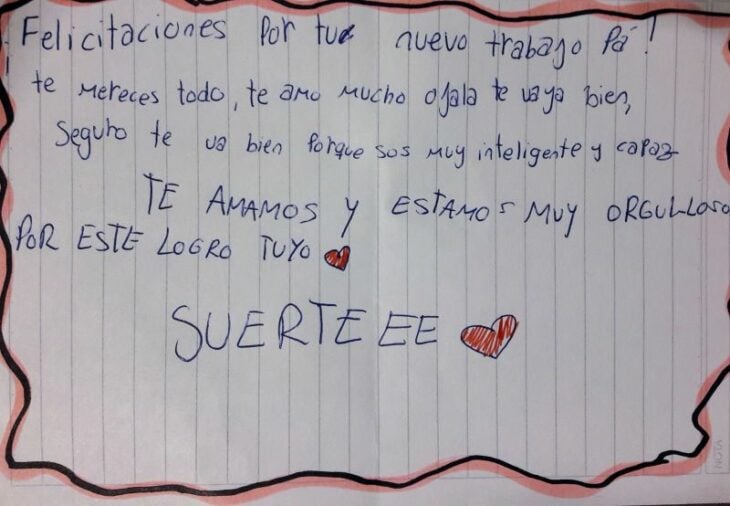 Felicitaciones por tu nuevo trabajo Pá!
te mereces todo, te amo mucho ojala te vaya bien,
Seguro te va bien porque sos muy inteligente y capaz
TE AMAMOS Y ESTAMOS MUY ORGULLOSO
POR ESTE LOGRO TUYO
SUERTEEE
NOTA